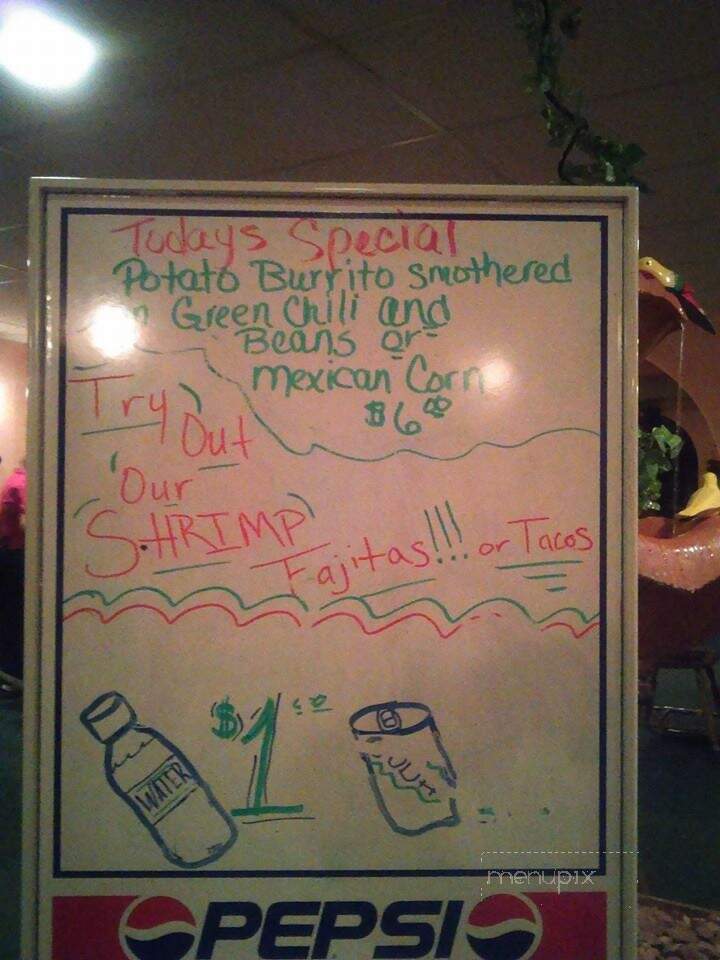 Todays Special
Potato Burrito smothered
in Green Chili and
Beans or
Mexican Corn
$6.00
Try Out
Our
SHRIMP
Fajitas!!! or Tacos
WATER
$1.00
menupix
PEPSI